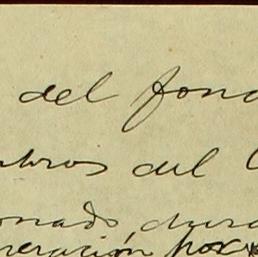 del fond
mbros del C
onado, dura
neración por